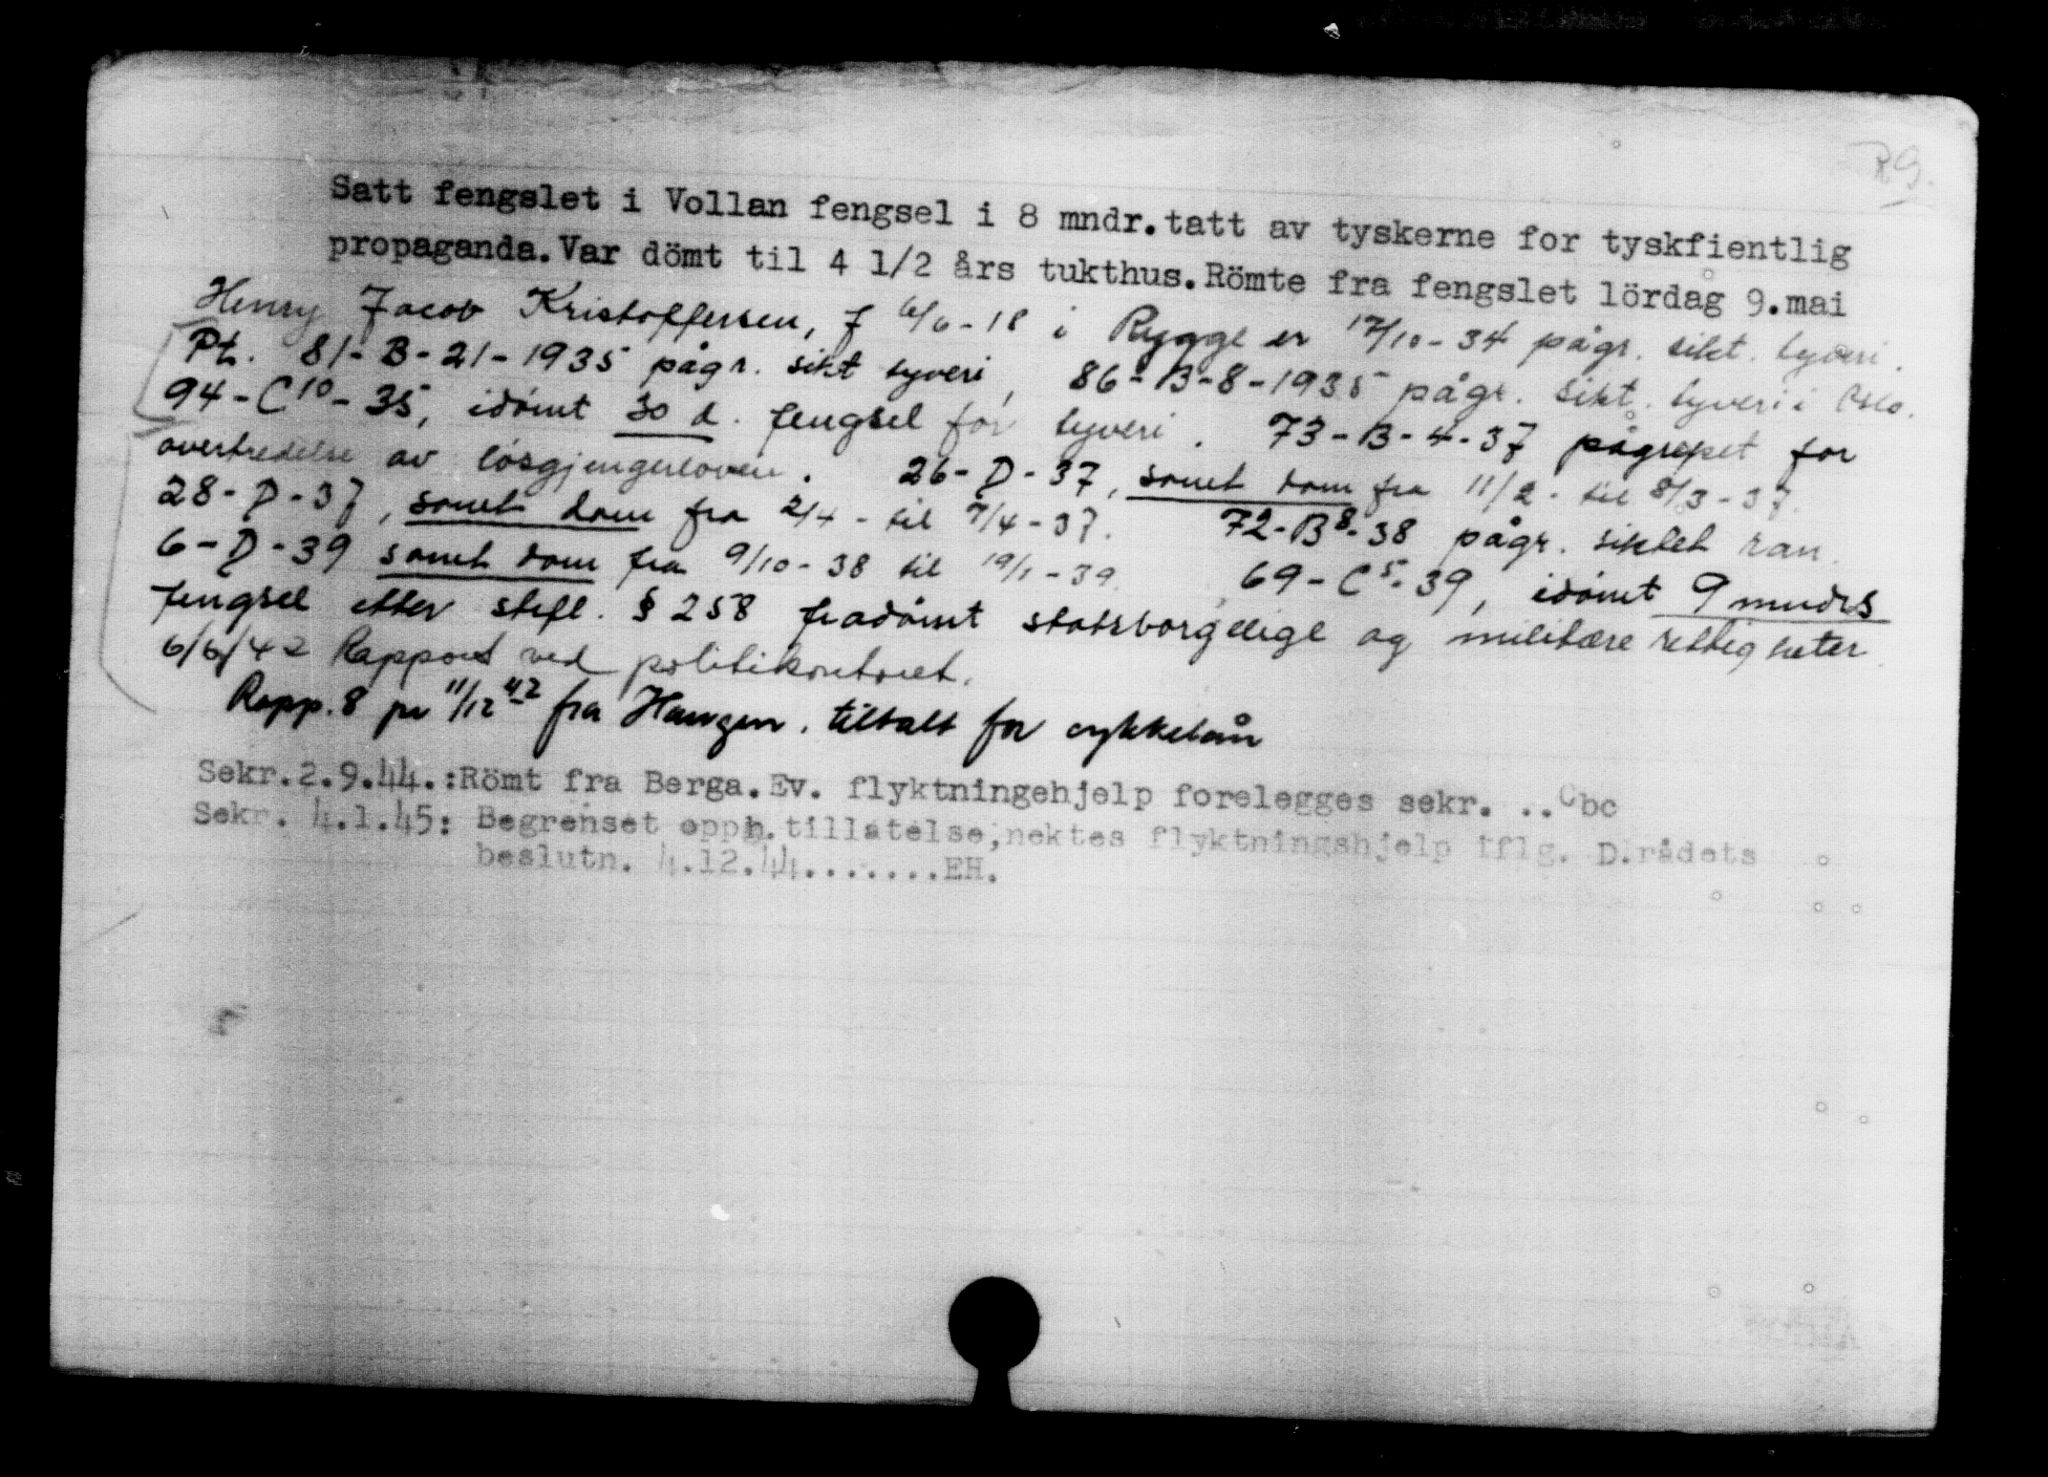 R9.
Satt fengslet i Vollan fengsel i 8 mndr.tatt av tyskerne for tyskfientlig
propaganda.Var dömt til 4 1/2 års tukthus.Römte fra fengslet lördag 9.mai
Henry Jacob Kristoffersen, f 6/6-18 i Rygge er 17/10-34 pågr. sikt. tyveri.
Pt. 81-B-21-1935 pågr. sikt tyveri, 86-B-8-1935 pågr. sikt. tyveri i Oslo.
94-C10-35, idømt 30 d. fengsel for tyveri. 73-B-4-37 pågrepet for
overtredelse av løsgjengerloven. 26-D-37, sonet dom fra 11/2- til 8/3-37.
28-D-37, sonet dom fra 2/4- til 7/4-37. 72-B8-38 pågr. siktet ran.
6-D-39 sonet dom fra 9/10-38 til 19/1-39. 69-C5-39, idømt 9 mndrs
fengsel etter strfl. § 258 fradømt statsborgelige og militære rettigheter
6/6/42 Rapport ved politikontoret.
Rapp. 8 pr 11/12 42 fra Haugen. tiltalt for cykkelån
Sekr.2.9.44.:Römt fra Berga.Ev. flyktningehjelp forelegges sekr. ..Cbc
Sekr. 4.1.45: Begrenset opph.tillatelse,nektes flyktningshjelp iflg. D.rådets
beslutn. 4.12.44.......EH.